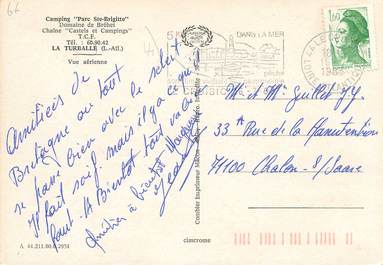 Camping "Parc Ste-Brigitte"
Domaine de Bréhet
Chaîne "Castels et Campings"
T.C.F.
Tél. : 60.90.42
LA TURBALLE (L.-Atl.)
Vue aérienne
Amitiés de
Bretagne où tout
se passe bien avec le soleil.
Il fait soif, mais il y a ce qui
faut. A Bientôt tout va
à bientôt
A 44.211.00.0.2054
Combier Imprimeur Mâcon
cimcrome
5 K
DANS LA MER
pêche
1,60
M. et Mme Guillet J.Y.
33 A Rue de la Manutention
71100 Chalon-S/Saône